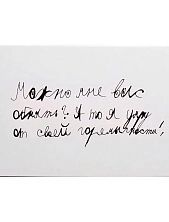 Можно мне вас
обнять? А то я упу
от своей горемычности!